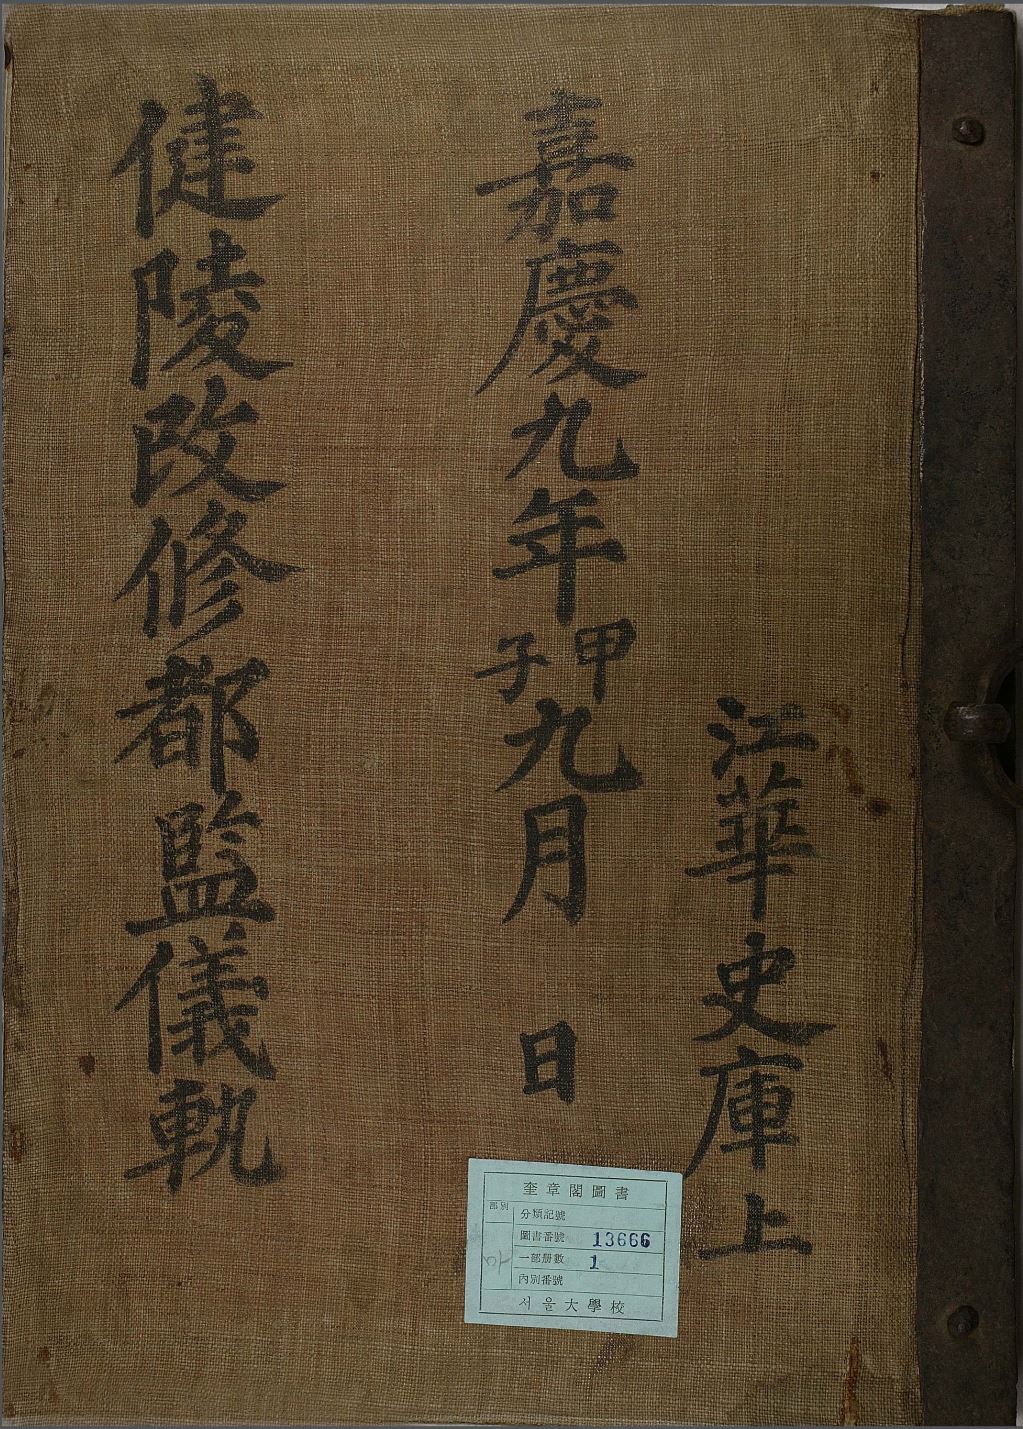 江華史庫上
嘉慶九年甲子九月 日
健陵改修都監儀軌
奎章閣圖書
部別
分類記號
圖書番號 13666
一部册數 1
內別番號
서울大學校